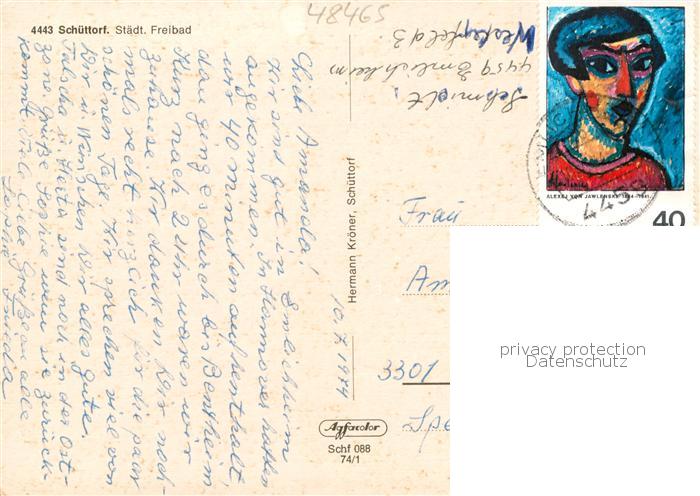 48465
4443 Schüttorf. Städt. Freibad
Schmidt,
4459 Emlichheim
Westerfeld 3.
ALEXEJ VON JAWLENSKY 1864-1941
40
4459
Emlichheim
10.7.1974
Liebe Amanda!
Wir sind gut in
angekommen. In Hannover hatten
wir 40 Minuten Aufenthalt,
dan ging es durch bis Bentheim
Kurz nach 2 Uhr waren wir
zuhause. Wir danken Dir noch-
mals recht herzlich für die paar
schönen Tage. Wir sprechen viel von
Dir u. wünschen Dir alles gute.
u. Herta sind noch in der Ost-
zone. Grüße Sophie wenn sie zurück-
kommt. Viele liebe Grüße an alle
Frieda
Hermann Kröner, Schüttorf
Agfacolor
Schf 088
74/1
Frau
Am
3301
Spe
privacy protection
Datenschutz